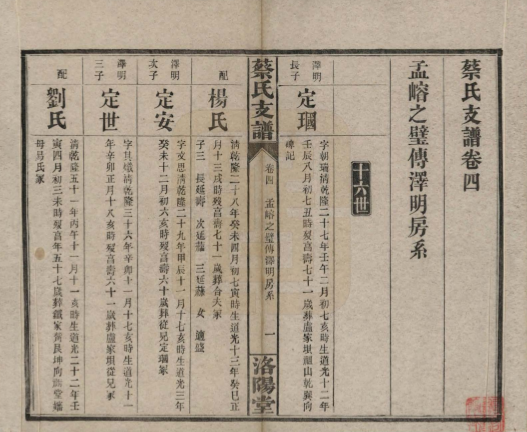 蔡氏支譜卷四
孟嵱之璧傳澤明房系
十六世
澤明
長子
定瑻
字朝瑞清乾隆二十七年壬午二月初七亥時生道光十二年
壬辰八月初七丑時歿高壽七十一歲葬盧家垻顯山乾巽向
碑記
蔡氏支譜
卷四
孟嵱之璧傳澤明房系
一
洛陽堂
配
楊氏
清乾隆二十八年癸未四月初七寅時生道光十三年癸巳正
月十三戌時歿高壽七十一歲葬合夫冢
子三 長延壽 次延 三延 女
澤明
次子
定安
字文思清乾隆二十九年甲辰十一月十七亥時生道光三年
癸未十二月初六亥時歿高壽六十歲葬從兄定瑻冢
澤明
三子
定世
字其 清乾隆三十六年辛卯十一月十七亥時生道光十一
年辛卯五月十八亥時歿高壽六十一歲葬盧家垻從兄冢
配
劉氏
清乾隆五十一年丙午十一月十一亥時生道光二十二年壬
寅四月初三未時歿高年五十七歲葬 家 艮坤向
母易氏冢